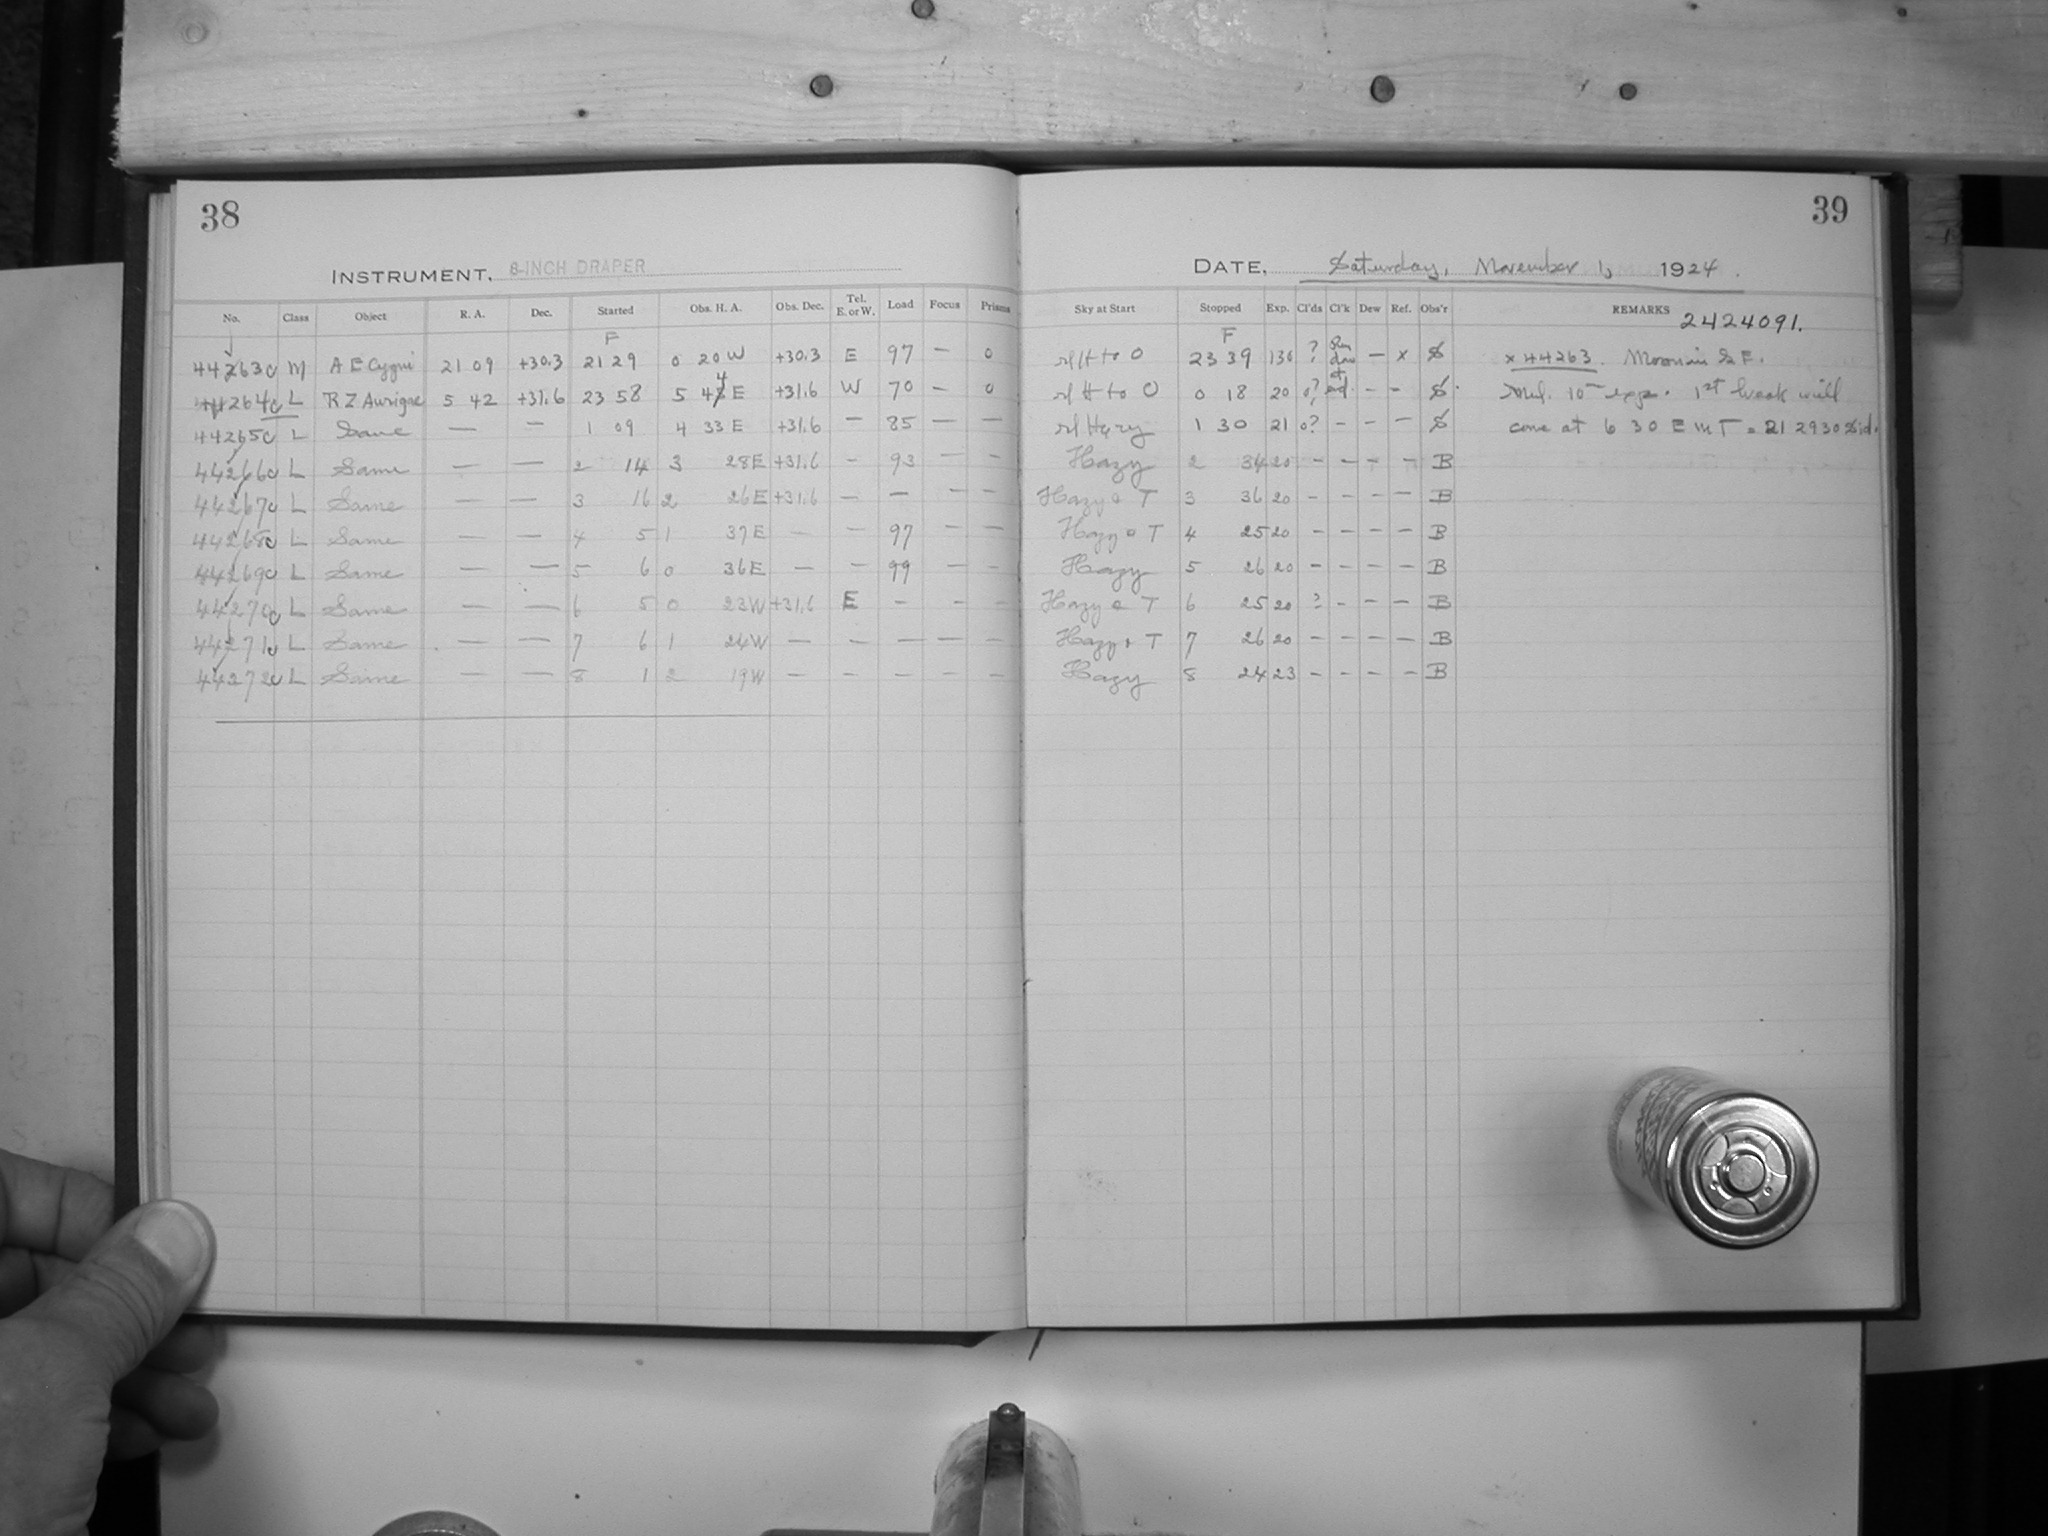 38
INSTRUMENT. 8-INCH DRAPER
No. Class Object R. A. Dec. Started Obs. H. A. Obs. Dec. Tel. E. or W. Load Focus Prisms
F
44263c M A E Cygni 21 09 +30.3 21 29 0 20 W +30.3 E 97 — 0
44264c L R Z Aurigae 5 42 +31.6 23 58 5 44 E +31.6 W 70 — 0
44265c L Same — — 1 09 4 33 E +31.6 — 85 — —
44266c L Same — — 2 14 3 28 E +31.6 — 93 — —
44267c L Same — — 3 16 2 26 E +31.6 — — — —
44268c L Same — — 4 5 1 37 E — — 97 — —
44269c L Same — — 5 6 0 36 E — — 99 — —
44270c L Same — — 6 5 0 23 W +31.6 E — — —
44271c L Same — — 7 6 1 24 W — — — — —
44272c L Same — — 8 1 2 19 W — — — — —
39
DATE, Saturday, November 1, 1924.
Sky at Start Stopped Exp. Cl'ds Cl'k Dew Ref. Obs'r REMARKS 2424091.
F
sl H to O 23 39 130 ? — x S x 44263. Moon in S F.
sl H to O 0 18 20 0? — — S. 10 m exp. 1st break will
sl Hazy 1 30 21 0? — — — S come at 6 30 E M T = 21 29 30 Sid.
Hazy 2 34 20 — — — — B
Hazy & T 3 36 20 — — — — B
Hazy & T 4 25 20 — — — — B
Hazy 5 26 20 — — — — B
Hazy & T 6 25 20 ? — — — B
Hazy & T 7 26 20 — — — — B
Hazy 8 24 23 — — — — B